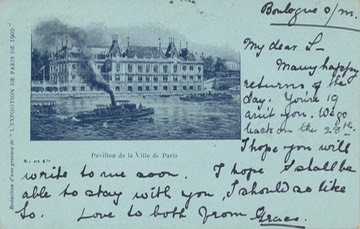 Boulogne s/m.
My dear S—
Many happy
returns of the
day. You're 19
arn't you. We go
back on the 28th.
I hope you will
write to me soon. I hope I shall be
able to stay with you, I should so like
to. Love to both from Grace.
Pavillon de la Ville de Paris
N.. et Cie
"L'EXPOSITION DE PARIS DE 1900"